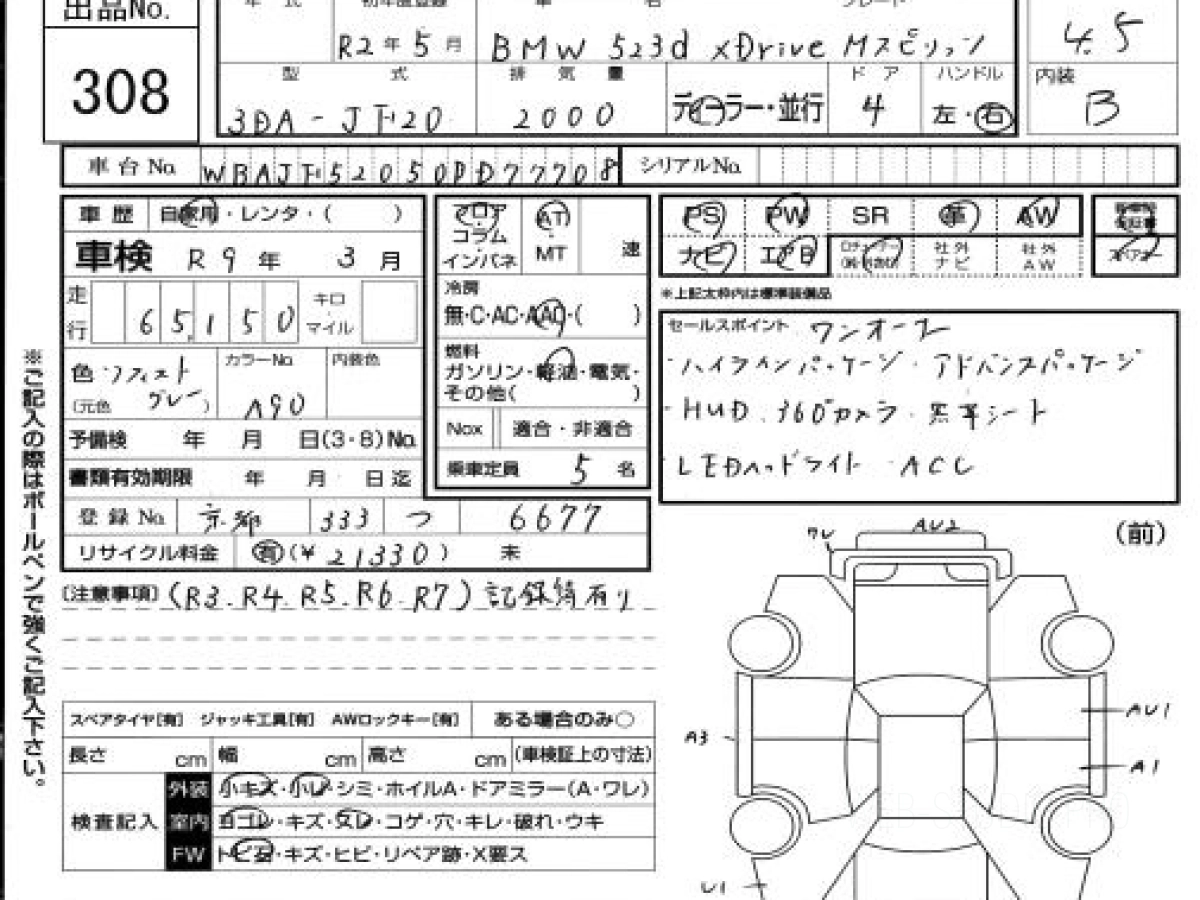 出品No.
308
年 式 初年度登録 車 名 グレード
R2年5月 BMW 523d xDrive Mスピリット 4.5
型 式 排 気 量 ドア ハンドル 内装
3DA-JF20 2000 ディーラー・並行 4 左・右 B
車台No. WBAJF52050 シリアルNo.
車歴 自家用・レンタ・( )
車検 R9年 3月
走行 65,150 キロ・マイル
色 ソフィスト グレー (元色 ) カラーNo. A90 内装色
予備検 年 月 日(3・8)No.
書類有効期限 年 月 日迄
登録No. 京都 333 つ 6677
リサイクル料金 有(¥21330) 未
フロア・コラム・インパネ AT・MT 速
冷房
無・C・AC・AAC・( )
燃料
ガソリン・軽油・電気・
その他( )
Nox 適合・非適合
乗車定員 5 名
PS PW SR 革 AW
ナビ エアB 社外ナビ 社外AW
※上記太枠内は標準装備品
セールスポイント ワンオーナー
・ハイラインパッケージ・アドバンスパッケージ
・HUD.360°カメラ・黒革シート
・LEDヘッドライト・ACC
(注意事項) (R3.R4.R5.R6.R7)記録簿有り
(前)
ワレ AU2
A3 AU1
A1
U1
スペアタイヤ[有] ジャッキ工具[有] AWロックキー[有] ある場合のみ○
長さ cm 幅 cm 高さ cm (車検証上の寸法)
検査記入
外装 小キズ・小凹・シミ・ホイルA・ドアミラー(A・ワレ)
室内 ヨゴレ・キズ・スレ・コゲ・穴・キレ・破れ・ウキ
FW トビ石・キズ・ヒビ・リペア跡・X要ス
※ご記入の際はボールペンで強くご記入下さい。